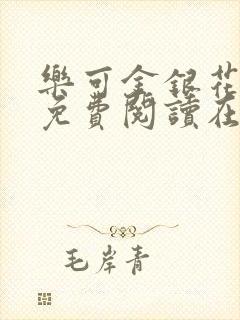 樂可金銀花
免費閱讀在
毛岸青